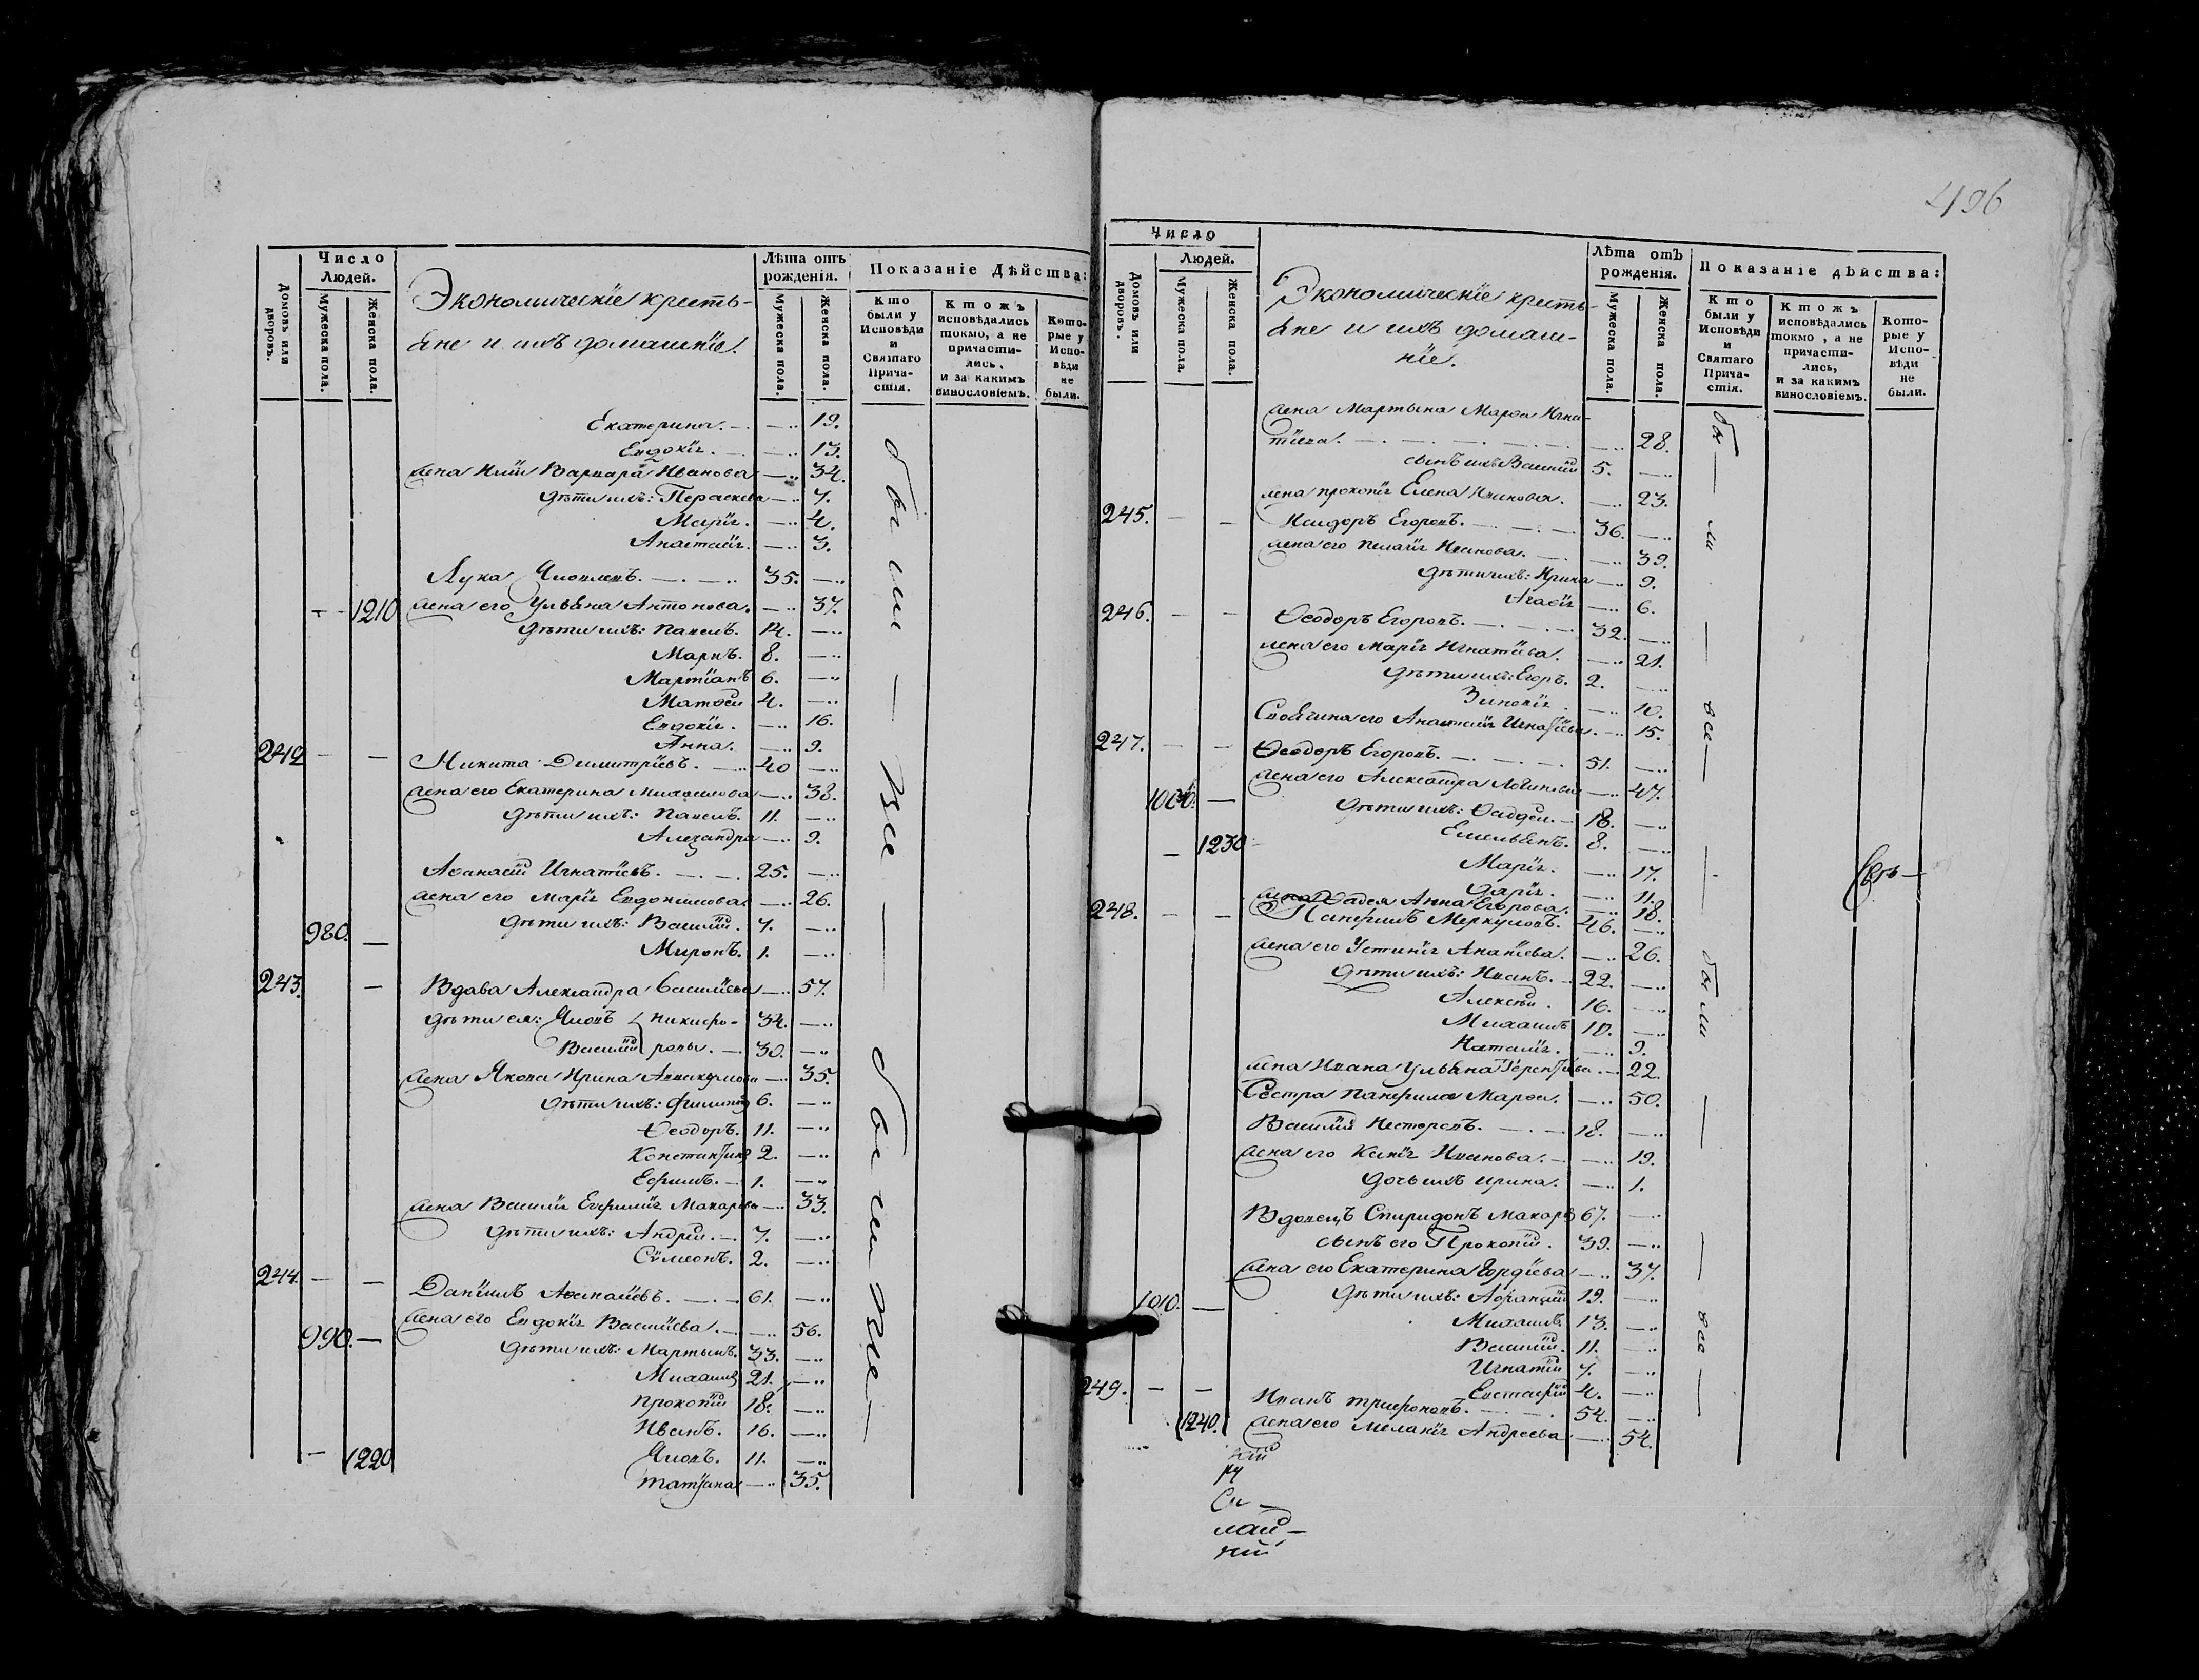 Домовъ или дворовъ.
Число Людей.
Мужеска пола.
Женска пола.
Экономическiе кресть-
яне и ихъ домашнiе.
Лѣта отъ рожденiя.
Мужеска пола
Женска пола.
Показанiе Дѣйства:
Кто были у Исповѣди и Святаго Прича-стiя.
Ктожъ исповѣдались токмо, а не причасти-лись, и за какимъ винословiемъ.
Кото-рые у Испо-вѣди не были.
Екатерина. — — 19.
Евдокiя. — — 13.
жена Варвара Иванова — 34.
дѣти ихъ: Параскева — 7.
Марiя. — 4.
Анастасiя. — 3.
Лука Iовлевъ. — 35. —
— 1210 жена его Ульяна Антонова. — 37.
дѣти ихъ: Павелъ. 14. —
Маркъ. 8. —
Мартiанъ 6. —
Матвѣй 4. —
Евдокiя. — 16.
Анна. — 9.
242 — — Никита Димитрiевъ. — 40 —
жена его Екатерина Михаилова — 38.
дѣти ихъ: Павелъ. 11. —
Алезандра — 9.
Аѳанасiй Игнатiевъ. — 25. —
жена его Марiя Евдокимова — 26.
980. — дѣти ихъ: Василiй. 7. —
Миронъ. 1. —
243. — Вдова Александра Василiева — 57.
дѣти ея: Яковъ Никифо- 34. —
Василiй ровы. — 30. —
жена Якова Ирина Аввакумова — 35.
дѣти ихъ: Филиппъ 6. —
Ѳеодоръ. 11. —
Константинъ 2. —
Ефимъ. — 1. —
жена Василiя Евфимiя Макарова — 33.
дѣти ихъ: Андрей. — 7. —
Сѵмеонъ. 2. —
244. — — Данiилъ Аѳанасiевъ. — 61. —
жена его Евдокiя Василiева. — 56.
990. — дѣти ихъ: Мартынъ. 33. —
Михаилъ 21. —
Прокопiй 18. —
Иванъ. 16. —
Яковъ. 11. —
— 1220 Татiана — 35.
были — все — были все —
496
Число
Людей.
Домовъ или дворовъ.
Мужеска пола.
Женска пола.
Экономическiе кресть-
яне и ихъ домаш-
нiе.
Лѣта отъ рожденiя.
Мужеска пола.
Женска пола.
Показанiе дѣйства:
Кто были у Исповѣди и Святаго Прича-стiя.
Ктожъ исповѣдались токмо, а не причасти-лись, и за какимъ винословiемъ.
Кото-рые у Испо-вѣди не были.
жена Мартына Марѳа Игна-
тiева. — — 28.
сынъ ихъ Василiй 5. —
жена Прокопiя Елена Иванова. — 23.
245. — — Исидоръ Егоровъ. — 36. —
жена его Пелагiя Иванова. — 39.
дѣти ихъ: Ирина — 9.
Агафiя — 6.
246. — — Ѳеодоръ Егоровъ. — 32. —
жена его Марiя Игнатiева. — 21.
дѣти ихъ: Егоръ. 2. —
Зиновiя. — 10.
Своячина его Анастасiя Игнатiева. — 15.
247. — — Ѳеодоръ Егоровъ. — 51. —
жена его Александра Логинова — 47.
1000. — дѣти ихъ: Ѳаддей. — 18. —
— 1230 Емельянъ. 8. —
Марiя. — 17.
Дарiя. — 11.
жена Ѳадея Анна Егорова. — 18.
248. — — Панфилъ Меркуловъ. 46. —
жена его Устинiя Ананiева. — 26.
дѣти ихъ: Иванъ. — 22. —
Алексѣй. 16. —
Михаилъ 10. —
Наталiя. — 9.
жена Ивана Ульяна Терентiева. — 22.
Сестра Панфила Марѳа. — 50.
Василiй Нестеровъ. — 18. —
жена его Ксенiя Иванова. — 19.
дочь ихъ Ирина. — 1.
Вдовецъ Спиридонъ Макаровъ 67. —
сынъ его Прокопiй. 39. —
жена его Екатерина Гордiева — 37.
1010. — дѣти ихъ: 19. —
Михаилъ 13. —
Василiй. 11. —
Игнатiй 7. —
Евстафiй 4. —
249. — — Иванъ Трифоновъ. — 54. —
1240. жена его Меланiя Андреева — 54.
бы — ли — все — были — все —